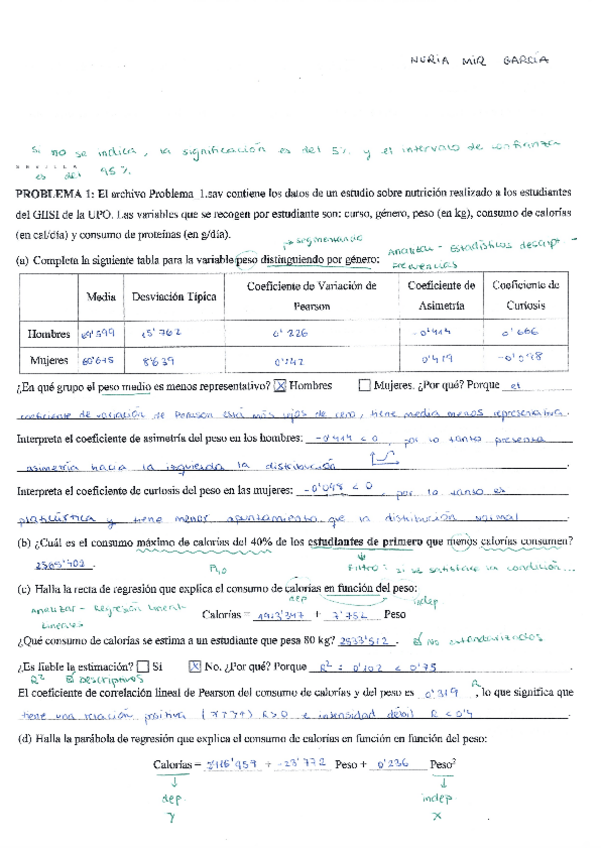 NURIA MIR GARCÍA
Si no se indica, la significación es del 5% y el intervalo de confianza
es del 95%
PROBLEMA 1: El archivo Problema_1.sav contiene los datos de un estudio sobre nutrición realizado a los estudiantes
del GIISI de la UPO. Las variables que se recogen por estudiante son: curso, género, peso (en kg), consumo de calorías
(en cal/día) y consumo de proteínas (en g/día).
segmentando
(a) Completa la siguiente tabla para la variable peso distinguiendo por género: Analizar - Estadísticos descript -
Frecuencias
Media Desviación Típica Coeficiente de Variación de Pearson Coeficiente de Asimetría Coeficiente de Curtosis
Hombres 15'762 0'226 -0'414 0'666
Mujeres 8'639 0'142 0'419
¿En qué grupo el peso medio es menos representativo? X Hombres Mujeres. ¿Por qué? Porque el
coeficiente de variación de Pearson está más lejos de cero, tiene media menos representativa.
Interpreta el coeficiente de asimetría del peso en los hombres: -0'414 < 0, por lo tanto presenta
asimetría hacia la izquierda la distribución.
Interpreta el coeficiente de curtosis del peso en las mujeres: < 0, por lo tanto es
platicúrtica y tiene menor apuntamiento que la distribución normal
(b) ¿Cuál es el consumo máximo de calorías del 40% de los estudiantes de primero que menos calorías consumen?
Filtro: si se satisface la condición...
(c) Halla la recta de regresión que explica el consumo de calorías en función del peso:
dep indep
Analizar - Regresión lineal -
Calorías = + Peso
¿Qué consumo de calorías se estima a un estudiante que pesa 80 kg? 2533'512. No estandarizados
¿Es fiable la estimación? Sí X No. ¿Por qué? Porque R² = 0'102 < 0'75
R² descriptivos
R
El coeficiente de correlación lineal de Pearson del consumo de calorías y del peso es 0'319, lo que significa que
tiene una relación positiva R>0 e intensidad débil R < 0'4
(d) Halla la parábola de regresión que explica el consumo de calorías en función en función del peso:
Calorías = + -23'772 Peso + 0'236 Peso²
dep indep
y x